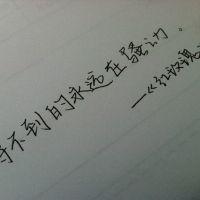 得不到的永远在骚动。
—《红玫瑰